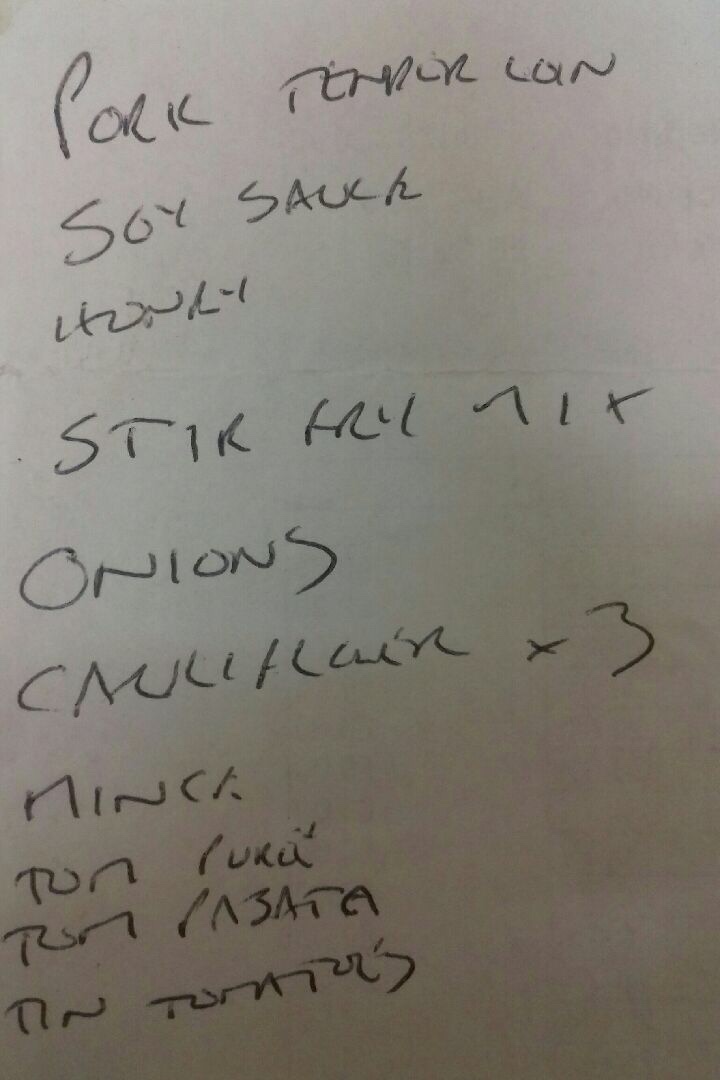 PORK TENDER LOIN
SOY SAUCE
HONEY
STIR FRY MIX
ONIONS
CAULIFLOWER x 3
MINCE
TOM PUREE
TOM PASATA
TIN TOMATOES